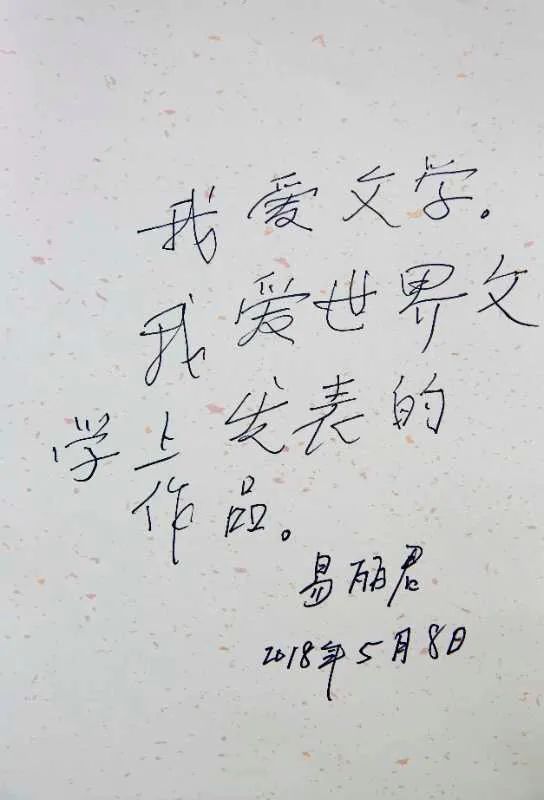 我爱文学。
我爱世界文
学上发表的
作品。
易丽君
2018年5月8日